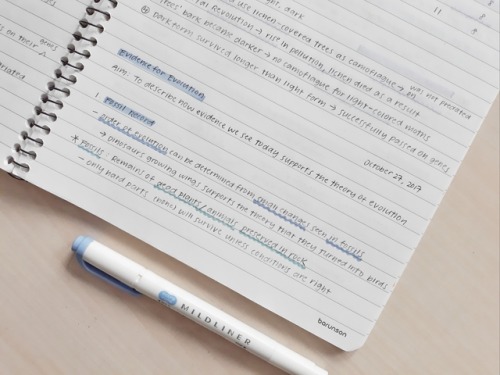 use lichen-covered trees as camouflage →
Revolution → rise in pollution, lichen died as a result
trees' bark became darker → no camouflage for light-colored moths
④ dark form survived longer than light form → successfully passed on genes
was not predated on
11
8
9
October 27, 2017
Evidence for Evolution
Aim: To describe how evidence we see today supports the theory of evolution
1. Fossil Record
- order of evolution can be determined from small changes seen in fossils
→ dinosaurs growing wings supports the theory that they turned into birds
* Fossils: Remains of dead plants/animals, preserved in rock
- only hard parts (bone) will survive unless conditions are right
barunson
MILDLINER